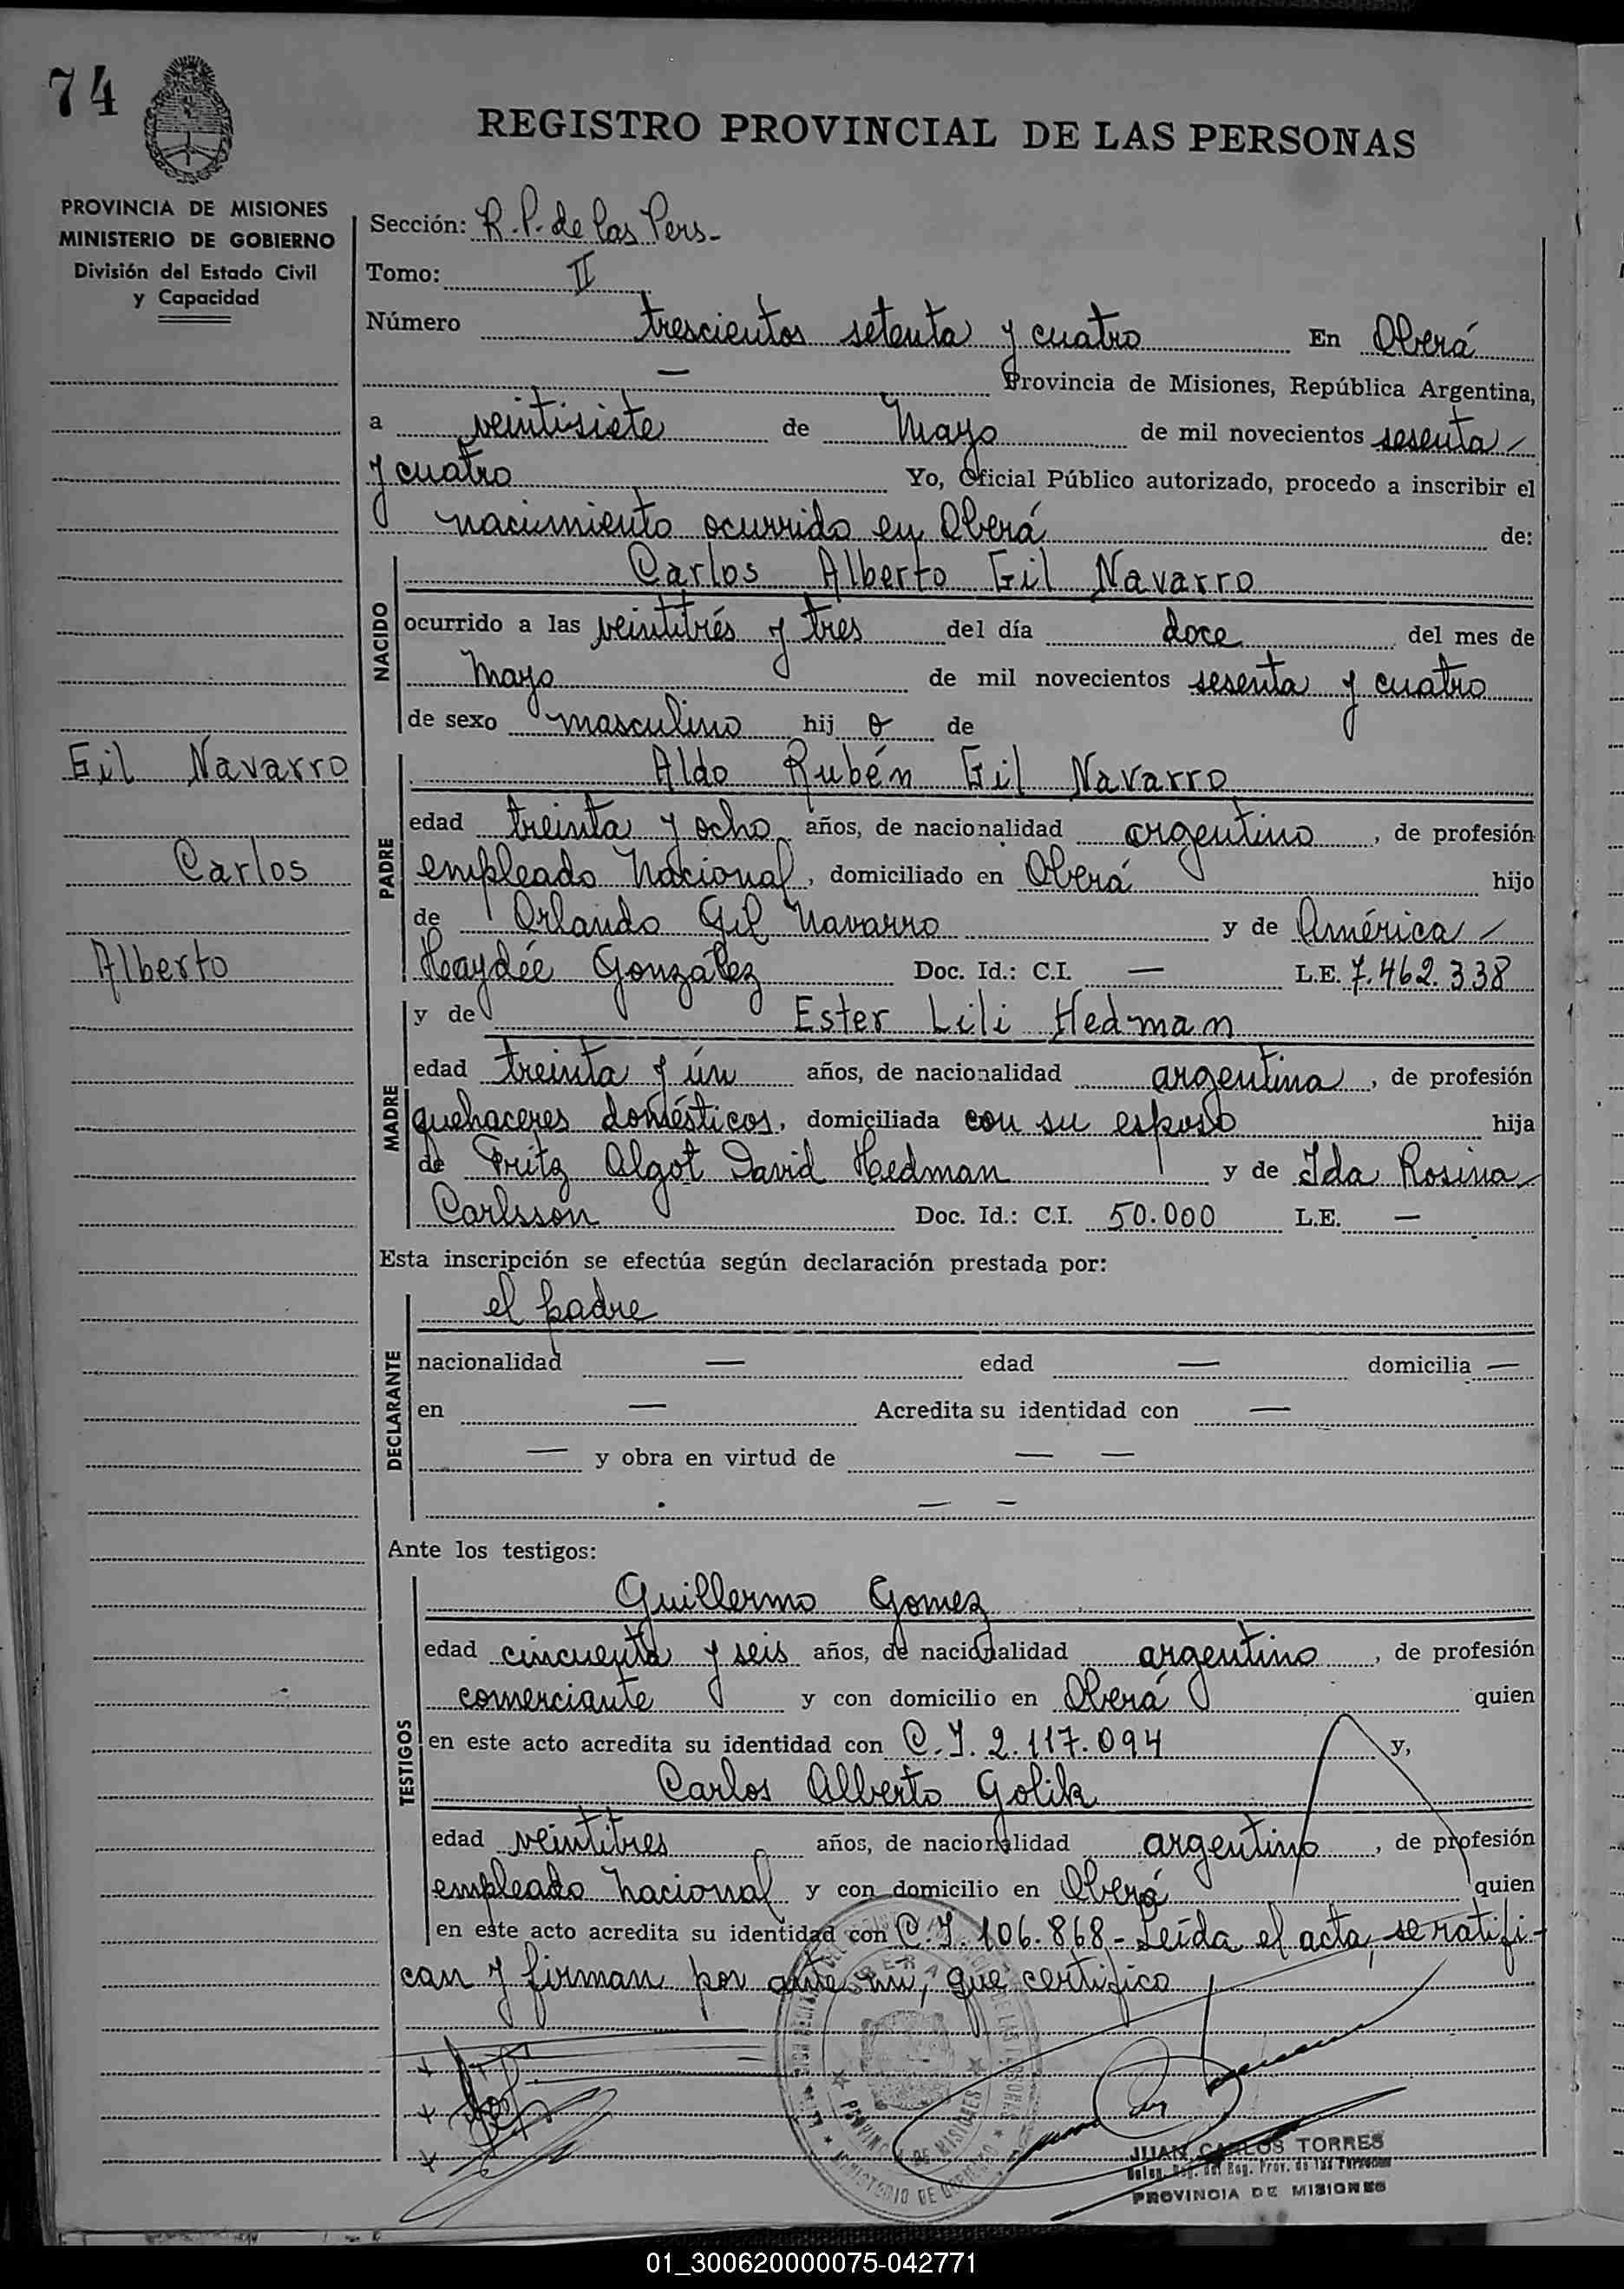 74
REGISTRO PROVINCIAL DE LAS PERSONAS
PROVINCIA DE MISIONES
MINISTERIO DE GOBIERNO
División del Estado Civil
y Capacidad
Sección: R.P. de las Pers-
Tomo: II
Número trescientos setenta y cuatro En Oberá
— Provincia de Misiones, República Argentina,
a veintisiete de Mayo de mil novecientos sesenta
y cuatro Yo, Oficial Público autorizado, procedo a inscribir el
nacimiento ocurrido en Oberá de:
NACIDO
Carlos Alberto Gil Navarro
ocurrido a las veintitrés y tres del día doce del mes de
Mayo de mil novecientos sesenta y cuatro
de sexo masculino hij o de
Gil Navarro
Carlos
Alberto
PADRE
Aldo Rubén Gil Navarro
edad treinta y ocho años, de nacionalidad argentino, de profesión
empleado Nacional, domiciliado en Oberá hijo
de Orlando Gil Navarro y de América
Haydée González Doc. Id.: C.I. — L.E. 7.462.338
MADRE
y de Ester Lili Hedman
edad treinta y ún años, de nacionalidad argentina, de profesión
quehaceres domésticos, domiciliada con su esposo hija
de Fritz Algot David Hedman y de Ida Rosina
Carlsson Doc. Id.: C.I. 50.000 L.E. —
Esta inscripción se efectúa según declaración prestada por:
DECLARANTE
el padre
nacionalidad — edad — domicilia —
en — Acredita su identidad con —
— y obra en virtud de — —
— —
Ante los testigos:
TESTIGOS
Guillermo Gomez
edad cincuenta y seis años, de nacionalidad argentino, de profesión
comerciante y con domicilio en Oberá quien
en este acto acredita su identidad con C.I. 2.117.094 y,
Carlos Alberto Golik
edad veintitres años, de nacionalidad argentino, de profesión
empleado Nacional y con domicilio en Oberá quien
en este acto acredita su identidad con C.I. 106.868- Leída el acta, se ratifi-
can y firman por ante mi, que certifico
OBERA
PROVINCIA DE MISIONES
MINISTERIO DE GOBIERNO
JUAN CARLOS TORRES
Deleg. Reg. del Reg. Prov. de las Personas
PROVINCIA DE MISIONES
01_300620000075-042771